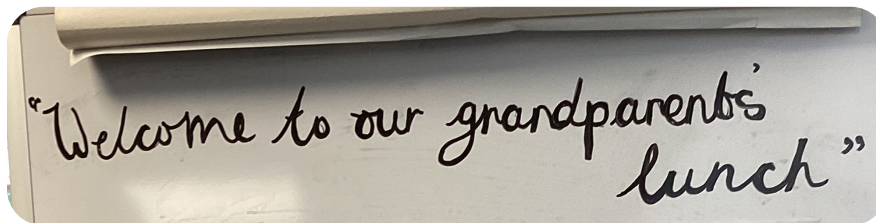 “Welcome to our grandparents'
lunch”